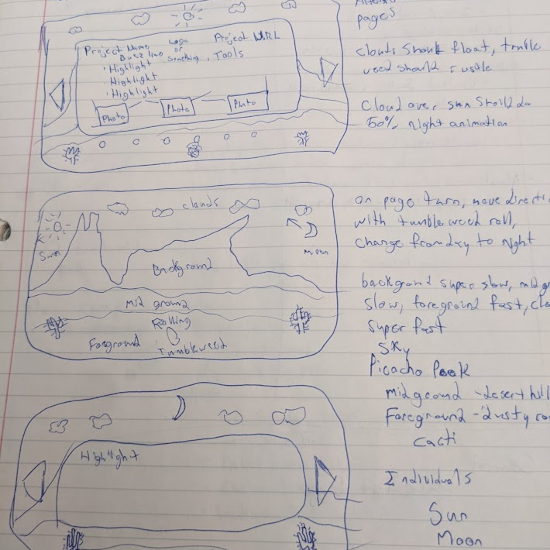 pages
Project Name
Buzz line
Logo
or
Something
Project URL
Tools
• Highlight
• Highlight
• Highlight
Photo
Photo
Photo
clouds should float, tumble
weed should rustle
Cloud over sun should do
50% night animation
clouds
Sun
moon
Background
Mid ground
Rolling
Foreground
Tumbleweed
on page turn, move directi
with tumbleweed roll,
change from day to night
background super slow, mid g
slow, foreground fast, clo
super fast
Sky
Picacho Peak
midground - desert hill
Foreground - dusty ro
cacti
Highlight
Individuals
Sun
Moon